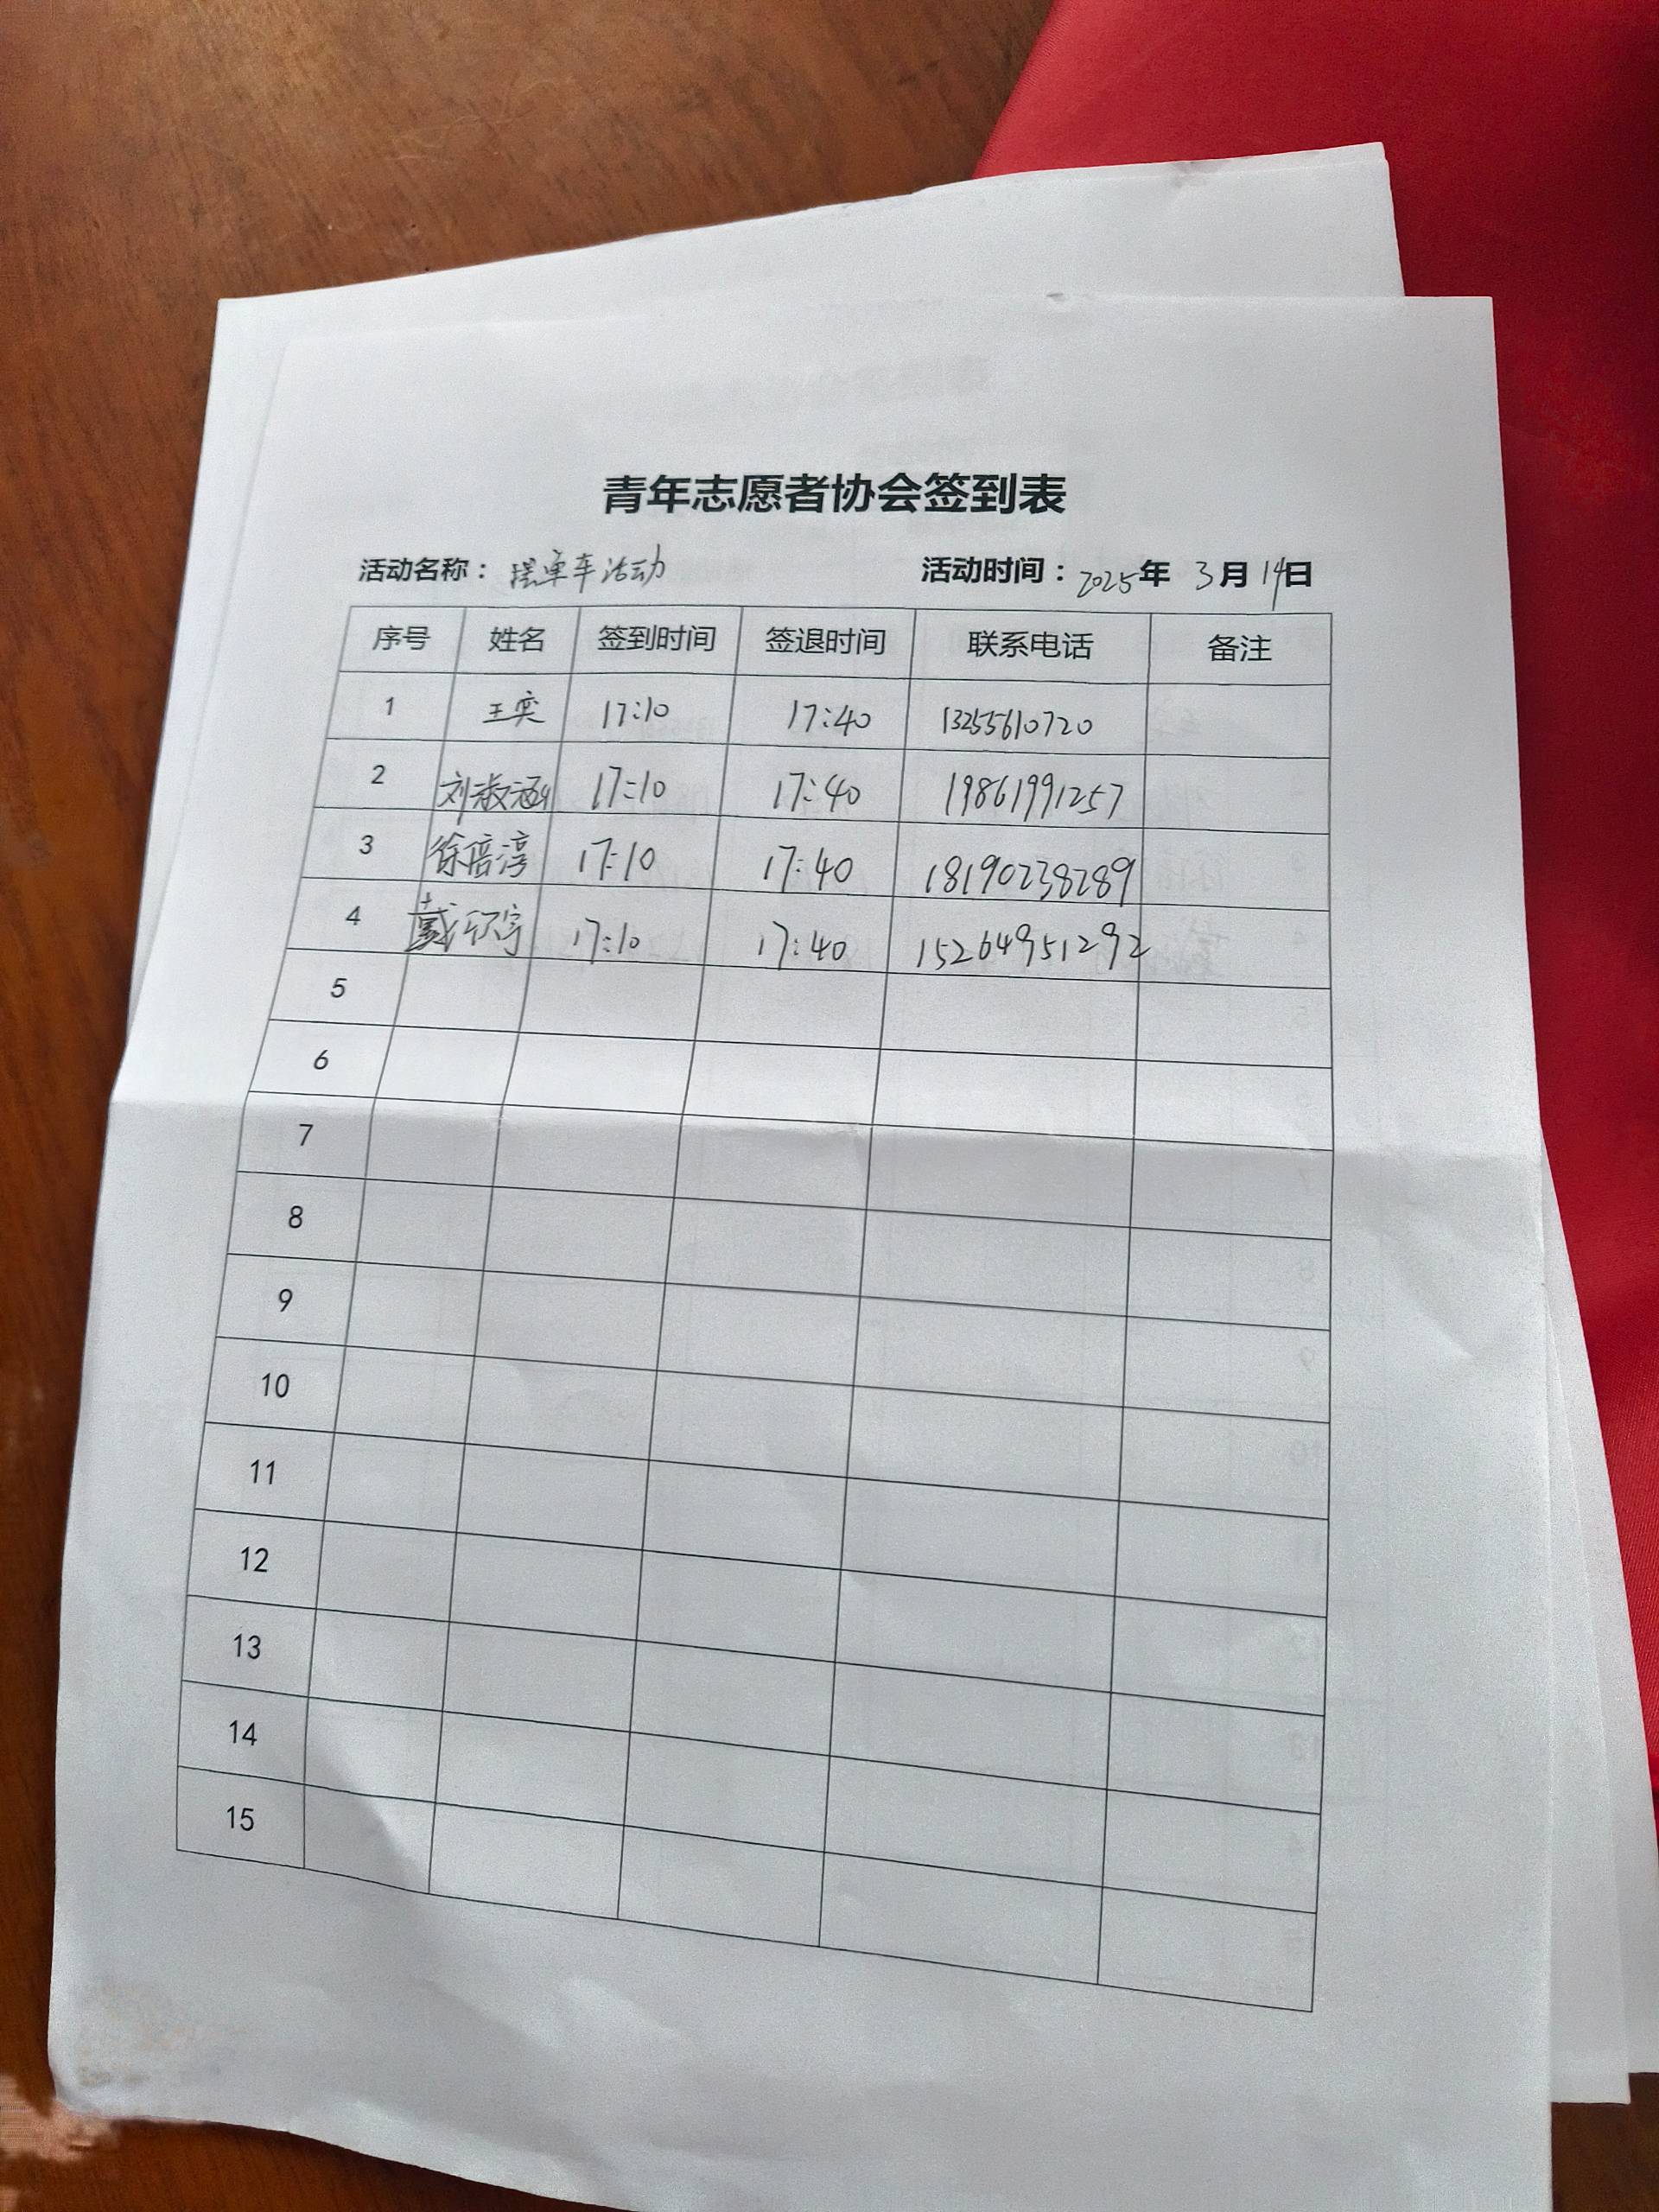 青年志愿者协会签到表
活动名称：摆单车活动 活动时间：2025年 3月14日
序号 姓名 签到时间 签退时间 联系电话 备注
1 王奕 17:10 17:40 13255610720
2 刘淑涵 17:10 17:40 19861991257
3 徐倍淳 17:10 17:40 18190238289
4 戴 宇 17:10 17:40 15264951292
5
6
7
8
9
10
11
12
13
14
15